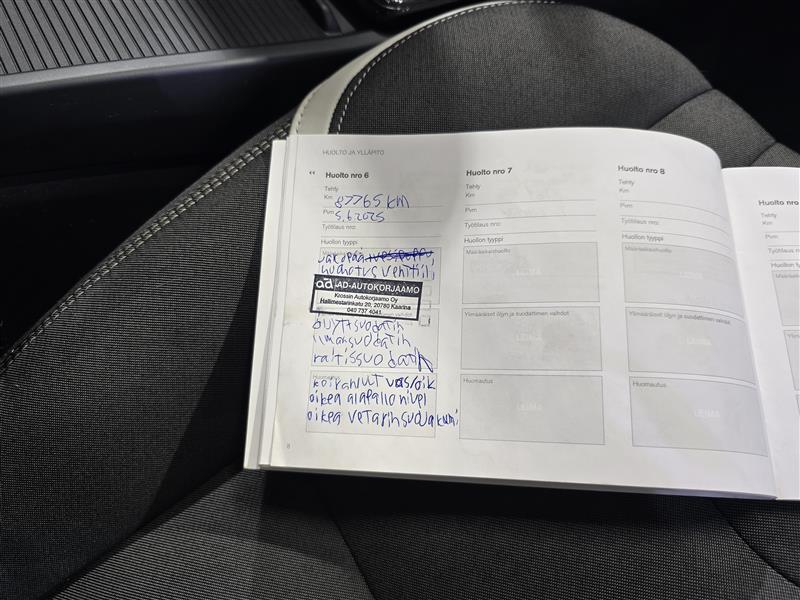 HUOLTO JA YLLÄPITO
Huolto nro 6
Tehty
Km 87765 KM
Pvm 5.6.2025
Työtilaus nro:
Huollon tyyppi
huohotus venttiili
ad AD-AUTOKORJAAMO
Krossin Autokorjaamo Oy
Hallimestarinkatu 20, 20780 Kaarina
040 737 4041
öljyt suodatin
ilmansuodatin
raitissuodatin
Huomautus
koiranluut vas/oik
oikea alapallonivel
oikea vetarinsuojakumi
8
Huolto nro 7
Tehty
Km
Pvm
Työtilaus nro:
Huollon tyyppi
Määräaikaishuolto
LEIMA
Ylimääräiset öljyn ja suodattimen vaihdot
LEIMA
Huomautus
LEIMA
Huolto nro 8
Tehty
Km
Pvm
Työtilaus nro:
Huollon tyyppi
Määräaikaishuolto
LEIMA
Ylimääräiset öljyn ja suodattimen vaihdot
LEIMA
Huomautus
LEIMA
Huolto nro
Tehty
Km
Pvm
Työtilaus nro:
Huollon tyyppi